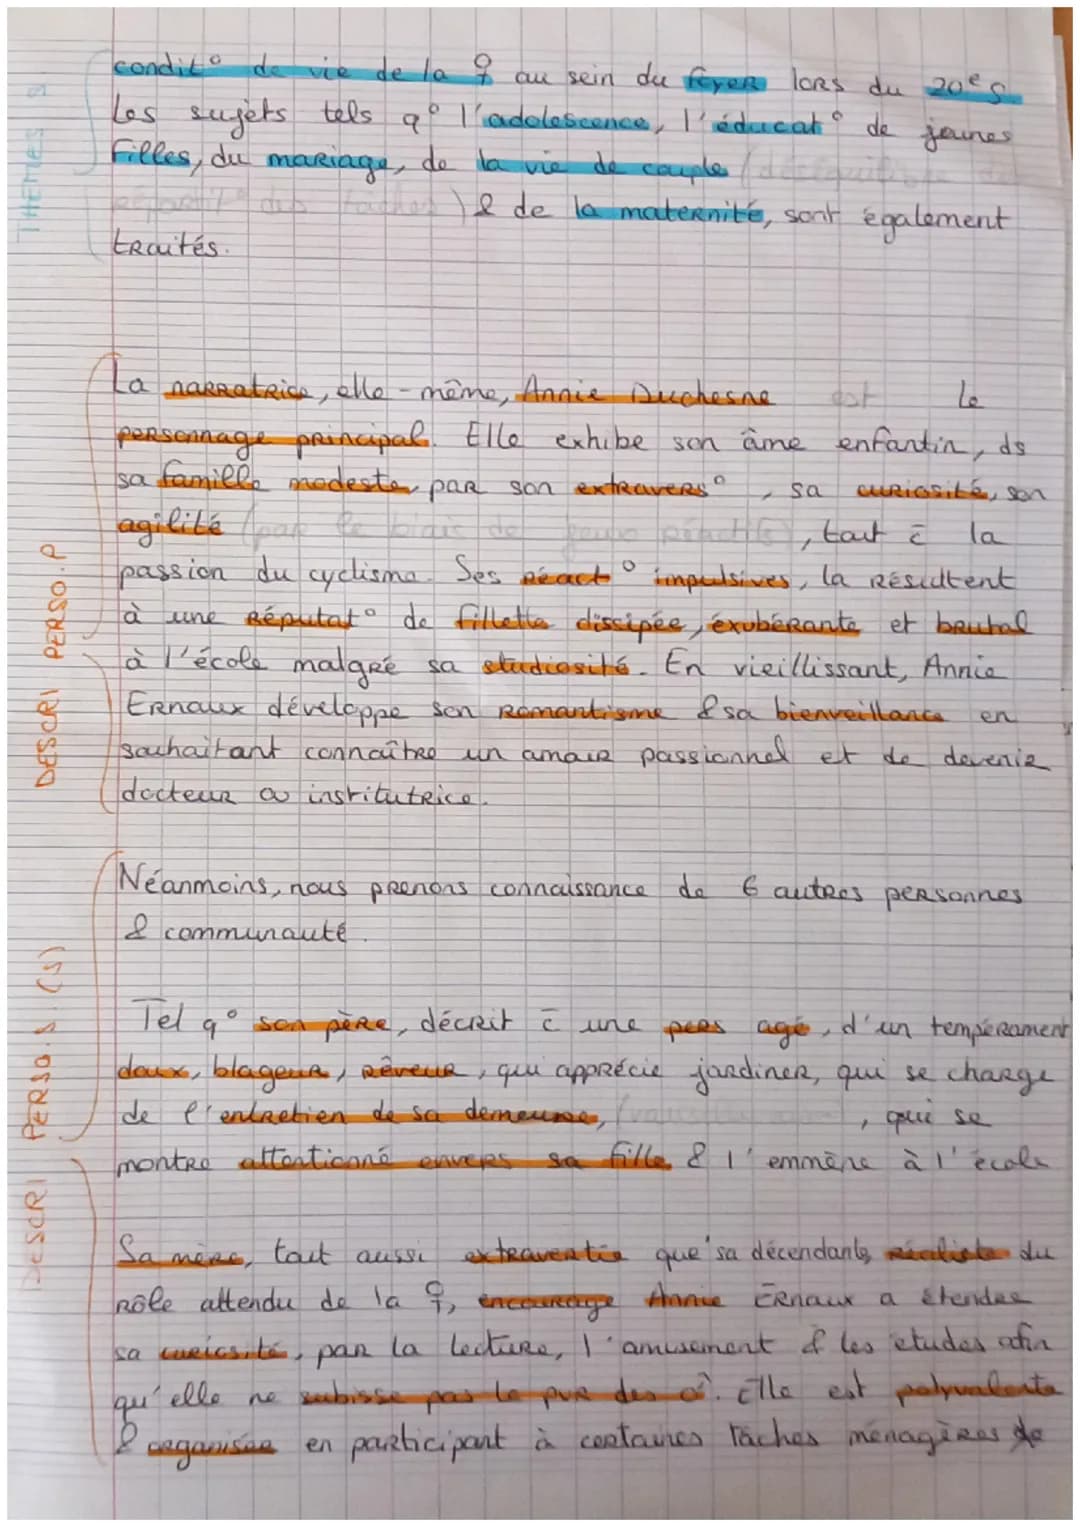 THÈMES
condit° de vie de la ♀ au sein du foyer lors du 20e s.
Les sujets tels q° l'adolescence, l'éducat° de jeunes
filles, du mariage, de la vie de couple (déséquilibre de
répartit° des tâches) & de la maternité, sont également
traités.
DESCRI PERSO.P
La narratrice, elle-même, Annie Duchesne est le
personnage principal. Elle exhibe son âme enfantin, ds
sa famille modeste, par son extravers°, sa curiosité, son
agilité (par le biais de jeux), tout c̄ la
passion du cyclisme. Ses réact° impulsives, la résultent
à une réputat° de fillette dissipée, exubérante et brutal
à l'école malgré sa studiosité. En vieillissant, Annie
Ernaux développe son romantisme & sa bienveillance en
souhaitant connaître un amour passionnel et de devenir
docteur ou institutrice.
DESCRI PERSO.S (s)
Néanmoins, nous prenons connaissance de 6 autres personnes
& communauté.
Tel q° son père, décrit c̄ une pers agé, d'un tempérament
doux, blagueur, rêveur, qui apprécie jardiner, qui se charge
de l'entretien de sa demeure, , qui se
montre attentionné envers sa fille & l'emmène à l'école
Sa mère, tout aussi extravertie que sa décendante, réaliste du
rôle attendu de la ♀, encourage Annie Ernaux a étendre
sa curiosité, par la lecture, l'amusement & les études afin
qu'elle ne subisse pas le pvr des ♂. Elle est polyvalente
& organisée en participant à certaines tâches ménagères de